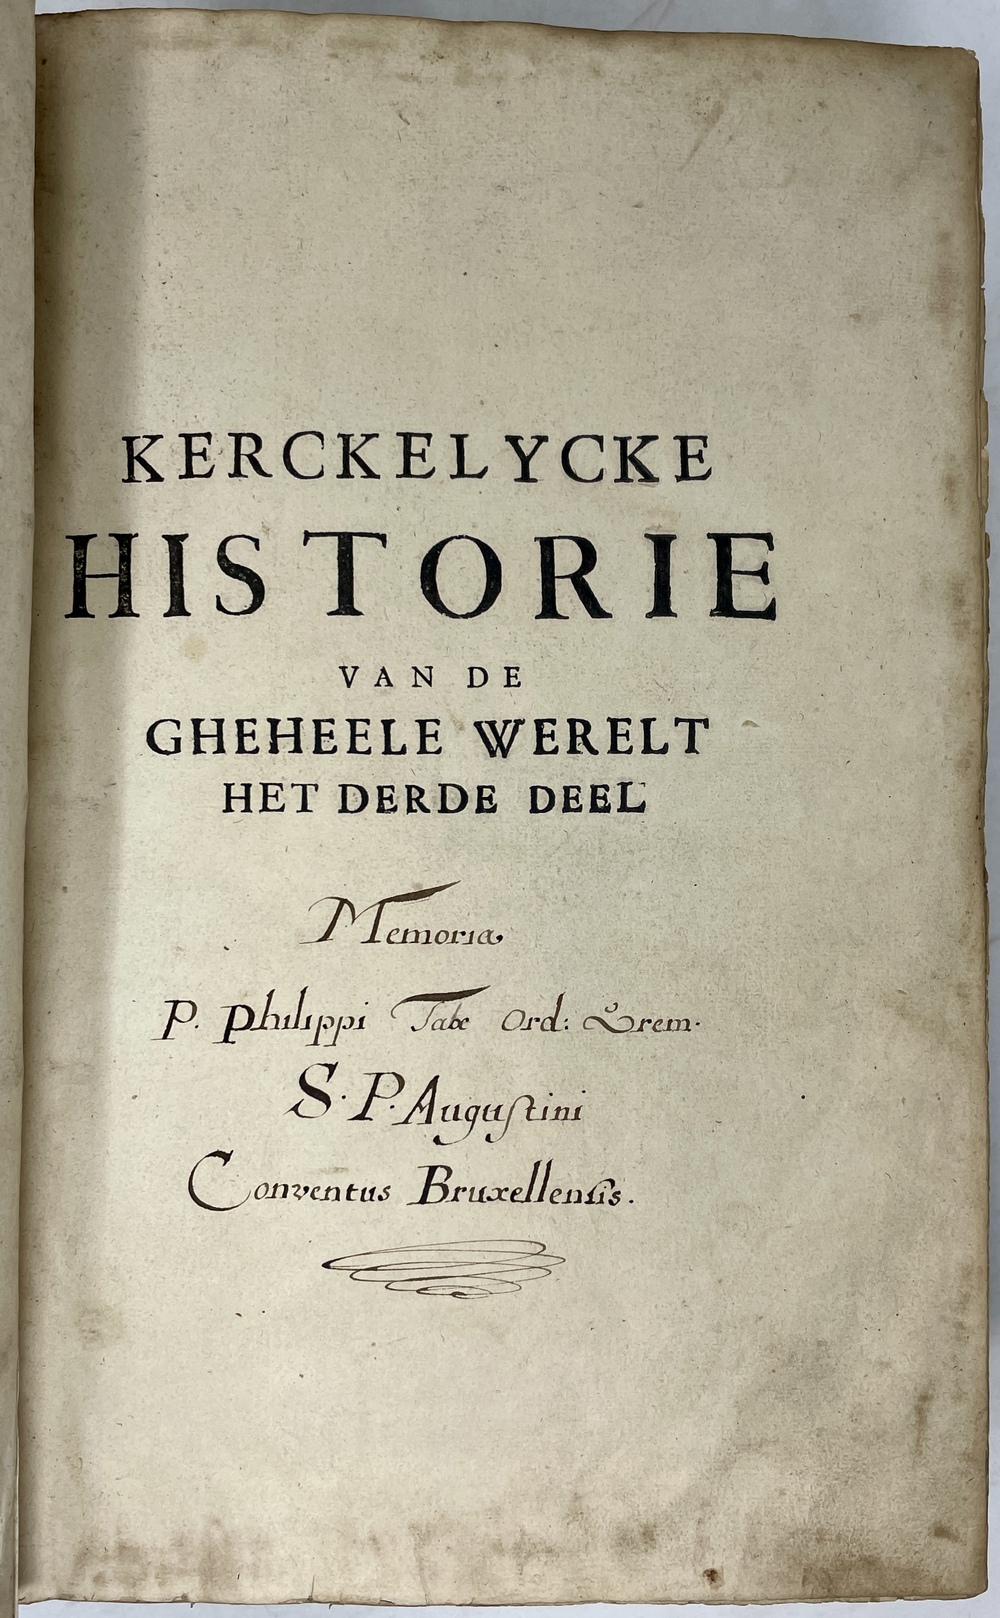 KERCKELYCKE
HISTORIE
VAN DE
GHEHEELE WERELT
HET DERDE DEEL
Memoria
P. Philippi Ord: Erem.
S. P. Augustini
Conventus Bruxellensis.